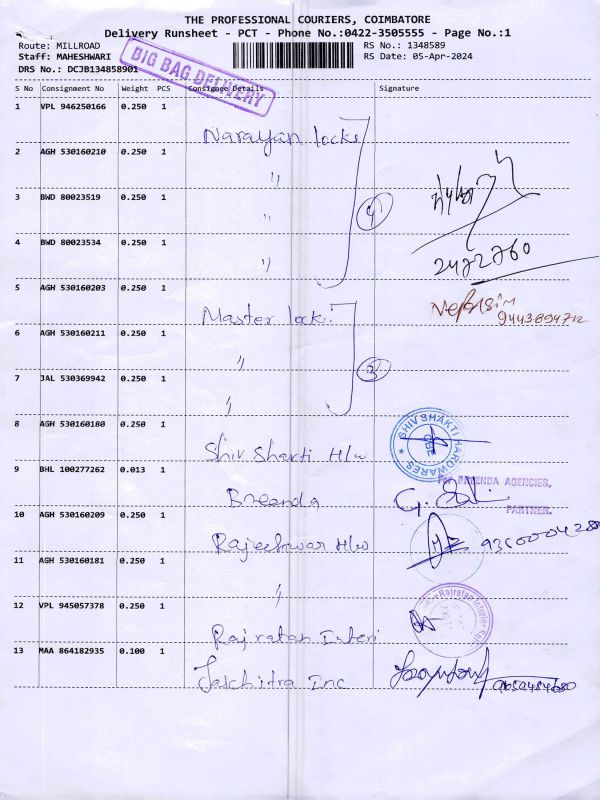 THE PROFESSIONAL COURIERS, COIMBATORE
Delivery Runsheet - PCT - Phone No.:0422-3505555 - Page No.:1
Route: MILLROAD
RS No.: 1348589
Staff: MAHESHWARI
RS Date: 05-Apr-2024
DRS No.: DCJB134858901
BIG BAG DELIVERY
S No Consignment No Weight PCS Consignee Details Signature
1 VPL 946250166 0.250 1 Narayan locks
2 AGH 530160210 0.250 1 "
3 BWD 80023519 0.250 1 "
4 BWD 80023534 0.250 1 "
4
2472760
5 AGH 530160203 0.250 1 Master lock
9443894712
6 AGH 530160211 0.250 1 "
7 JAL 530369942 0.250 1 "
3
8 AGH 530160180 0.250 1 Shiv Shakti H/w
SHIV SHAKTI HARDWARES
CBE
9 BHL 100277262 0.013 1 Breenda
AGENCIES,
PARTNER.
10 AGH 530160209 0.250 1 Rajeshwar H/w
11 AGH 530160181 0.250 1 "
12 VPL 945057378 0.250 1 Rajratan Interi
Rajratan Interi
13 MAA 864182935 0.100 1 Jaichitra Inc